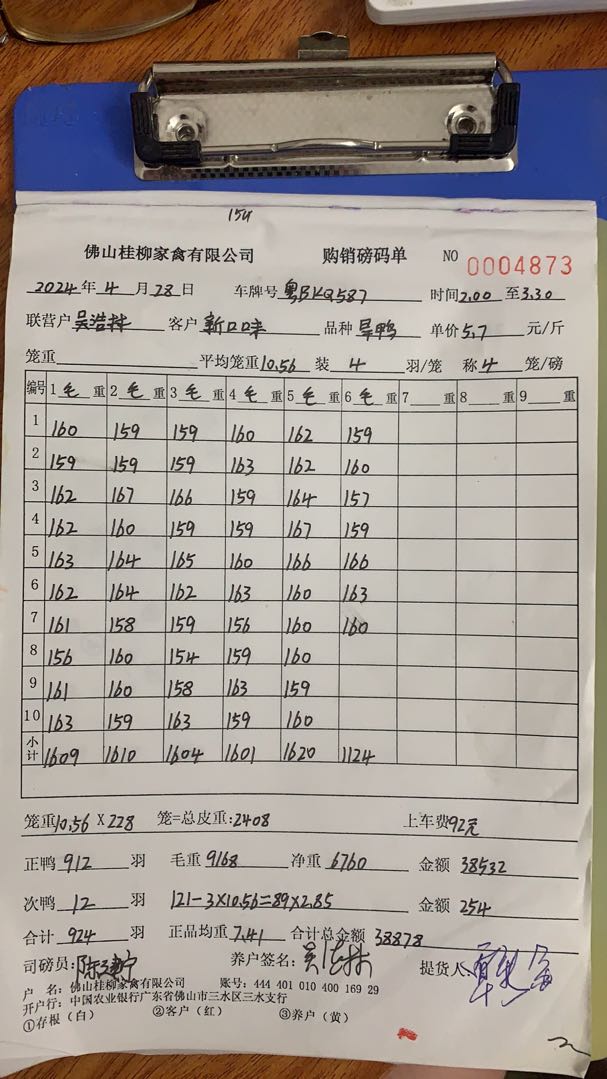 154
佛山桂柳家禽有限公司 购销磅码单 NO 0004873
2024年 4 月 28 日 车牌号 粤BKQ587 时间 2.00 至 3.30
联营户 吴浩林 客户 新口味 品种 旱鸭 单价 5.7 元/斤
笼重 平均笼重 10.56 装 4 羽/笼 称 4 笼/磅
编号 1 毛 重 2 毛 重 3 毛 重 4 毛 重 5 毛 重 6 毛 重 7 重 8 重 9 重
1 160 159 159 160 162 159
2 159 159 159 163 162 160
3 162 167 166 159 164 157
4 162 160 159 159 167 159
5 163 164 165 160 166 166
6 162 164 162 163 160 163
7 161 158 159 156 160 160
8 156 160 154 159 160
9 161 160 158 163 159
10 163 159 163 159 160
小计 1609 1610 1604 1601 1620 1124
笼重 10.56 X 228 笼=总皮重: 2408 上车费 92元
正鸭 912 羽 毛重 9168 净重 6760 金额 38532
次鸭 12 羽 121-3X10.56=89X2.85 金额 254
合计 924 羽 正品均重 7.41 合计总金额 38878
司磅员: 养户签名: 吴浩林 提货人:
户 名: 佛山桂柳家禽有限公司 账号: 444 401 010 400 169 29
开户行: 中国农业银行广东省佛山市三水区三水支行
①存根（白） ②客户（红） ③养户（黄）